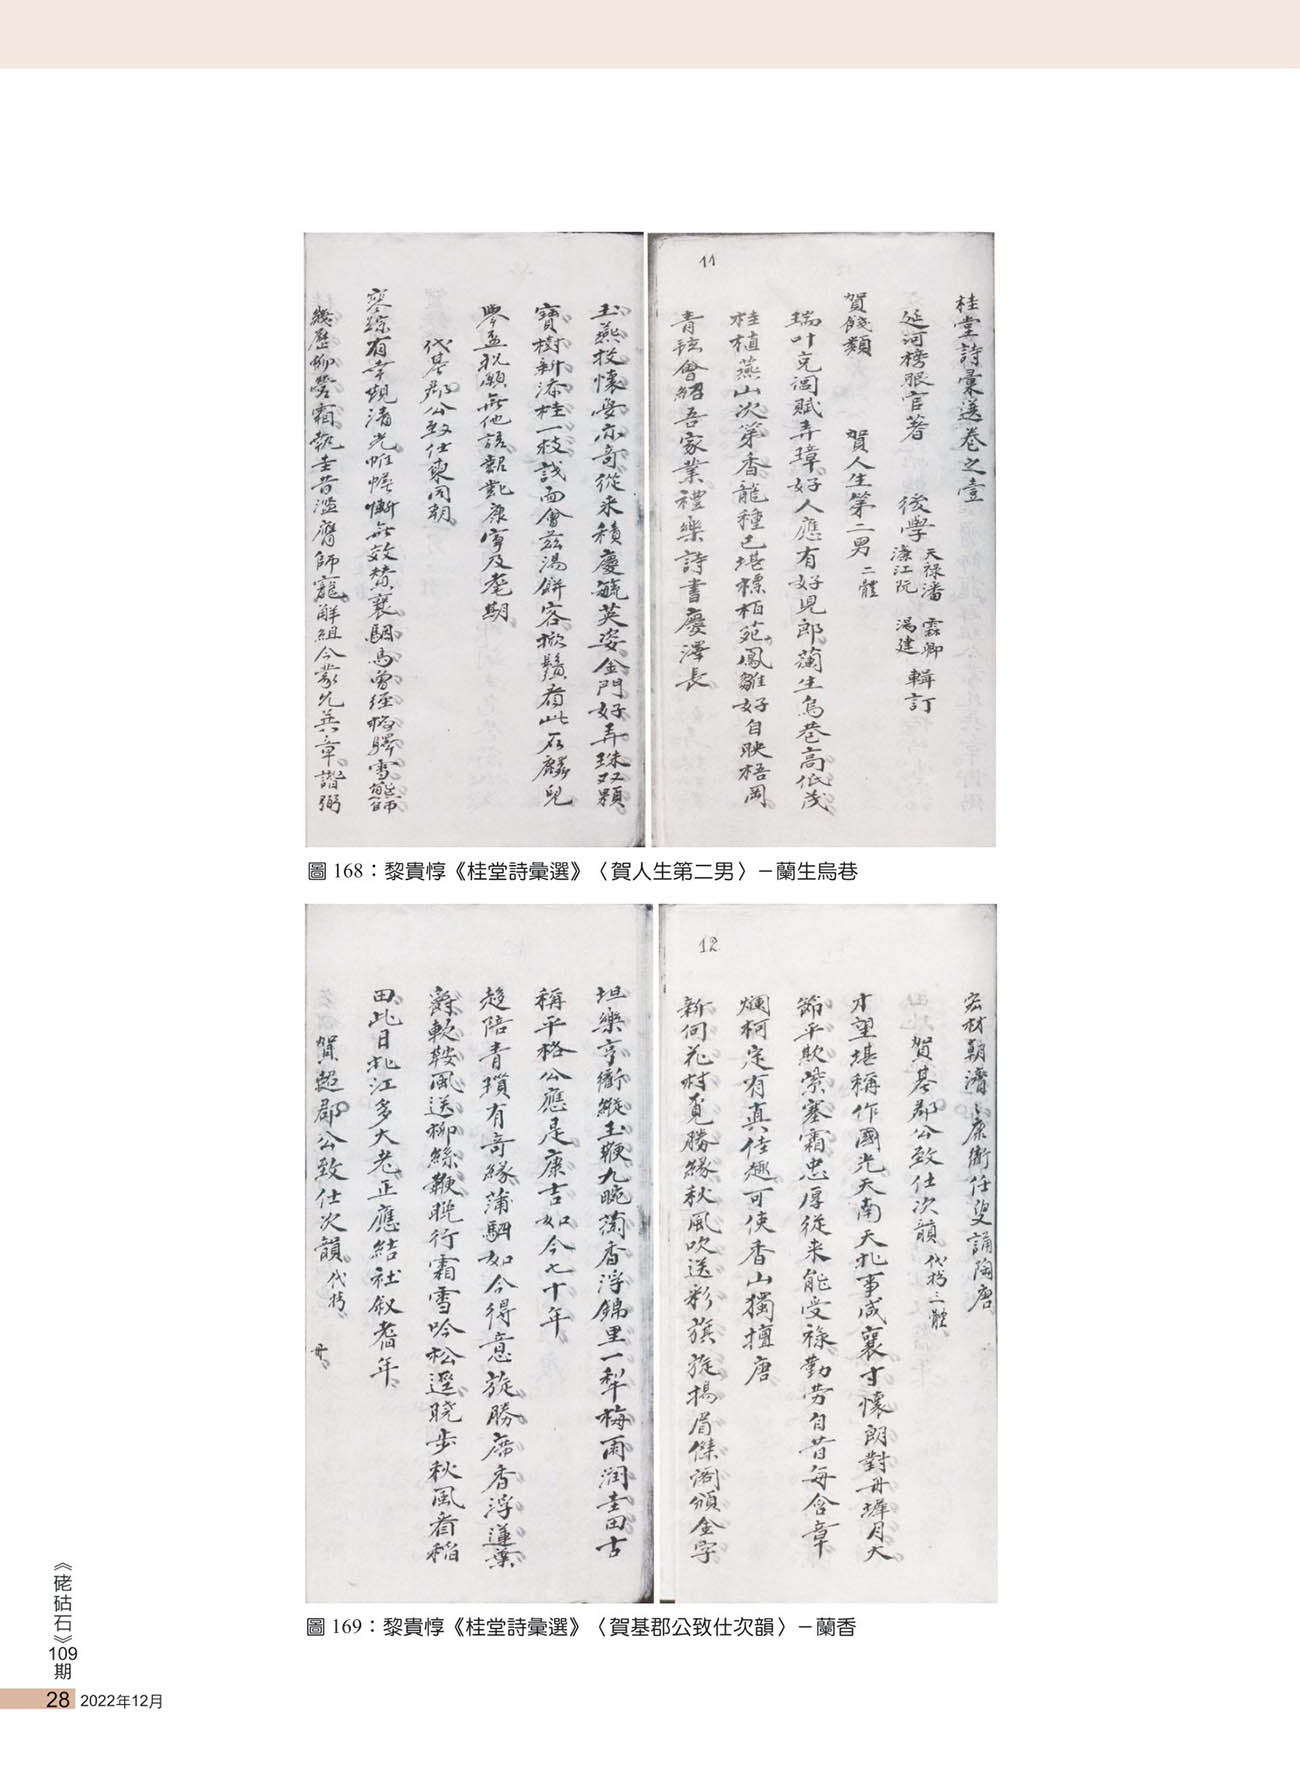 11
桂堂詩彙選卷之壹
延河榜眼官著 後學 天祿潘 霖卿 濂江阮 馮建 輯訂
賀餞類 賀人生第二男 二體
瑞叶充閭賦弄璋好人應有好兒郎蘭生烏巷高低茂
桂植燕山次第香龍種已堪標栢苑鳳雛好自映梧岡
青氊會紹吾家業禮樂詩書慶澤長
玉燕投懷要亦奇從来積慶毓英姿金門好弄珠双顆
寶樹新添桂一枝設面會茲湯餅客掀鬚看此石麟兒
舉盃祝願無他語齠齔康寧及耄期
代基郡公致仕柬同朝
寥踪有幸覩清光帷幄慚無效贊襄駟馬曾經揚驛雪
幾歷柳營霜執圭昔濫膺師寵解組今蒙允
圖 168：黎貴惇《桂堂詩彙選》〈賀人生第二男〉－蘭生烏巷
12
宏材朝濟〻康衢任叟誦陶唐
賀基郡公致仕次韻 代撰三體
才望堪稱作國光天南天北事咸襄寸懷朗對丹墀月大
節平欺紫塞霜忠厚從来能受祿勤勞自昔每含章
爛柯定有真佳趣可使香山獨擅唐
新向花村覓勝緣秋風吹送彩旗旋揚眉傑閣頒金字
坦樂亨衢縱玉鞭九畹蘭香浮錦里一犁梅雨潤圭田古
稱平格公應是康吉如今七十年
趍陪青瑣有奇緣蒲駟如今得意旋勝席香浮蓮葉
爵軟鞍風送柳絲鞭晚行霜雪吟松逕曉步秋風看稻
田此日北江多大老正應結社叙耆年
賀超郡公致仕次韻 代撰
圖 169：黎貴惇《桂堂詩彙選》〈賀基郡公致仕次韻〉－蘭香
《硓𥑮石》109期
28 2022年12月